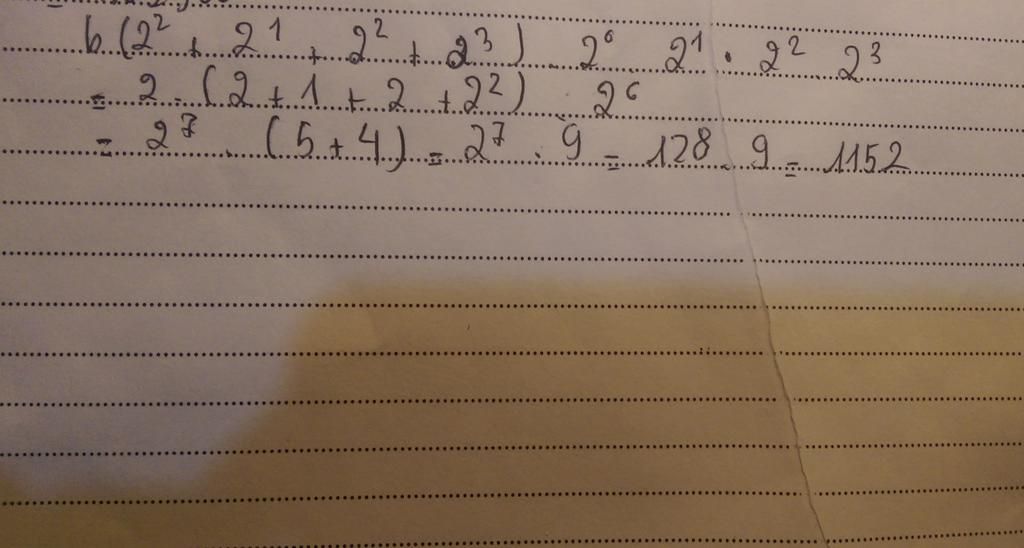 b (2² + 2¹ + 2² + 2³) . 2⁰ 2¹ . 2² . 2³
= 2 . (2 + 1 + 2 + 2²) . 2⁶
= 2⁷ . (5 + 4) = 2⁷ . 9 = 128 . 9 = 1152